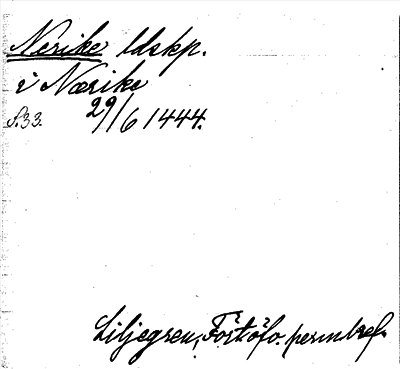 Nerike ldskp.
i Nærike
S. 33. 29/6 1444.
Liljegren, Förtöfo. permbref.